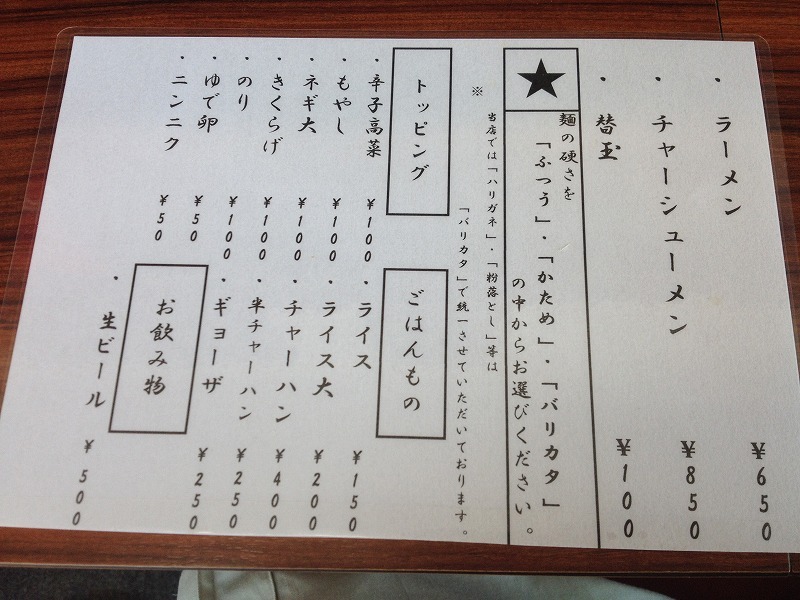 ・ラーメン ¥650
・チャーシューメン ¥850
・替玉 ¥100
★
麺の硬さを
「ふつう」・「かため」・「バリカタ」
の中からお選びください。
※ 当店では「ハリガネ」・「粉落とし」等は
「バリカタ」で統一させていただいております。
トッピング
・辛子高菜 ¥100
・もやし ¥100
・ネギ大 ¥100
・きくらげ ¥100
・のり ¥100
・ゆで卵 ¥50
・ニンニク ¥50
ごはんもの
・ライス ¥150
・ライス大 ¥200
・チャーハン ¥400
・半チャーハン ¥250
・ギョーザ ¥250
お飲み物
・生ビール ¥500